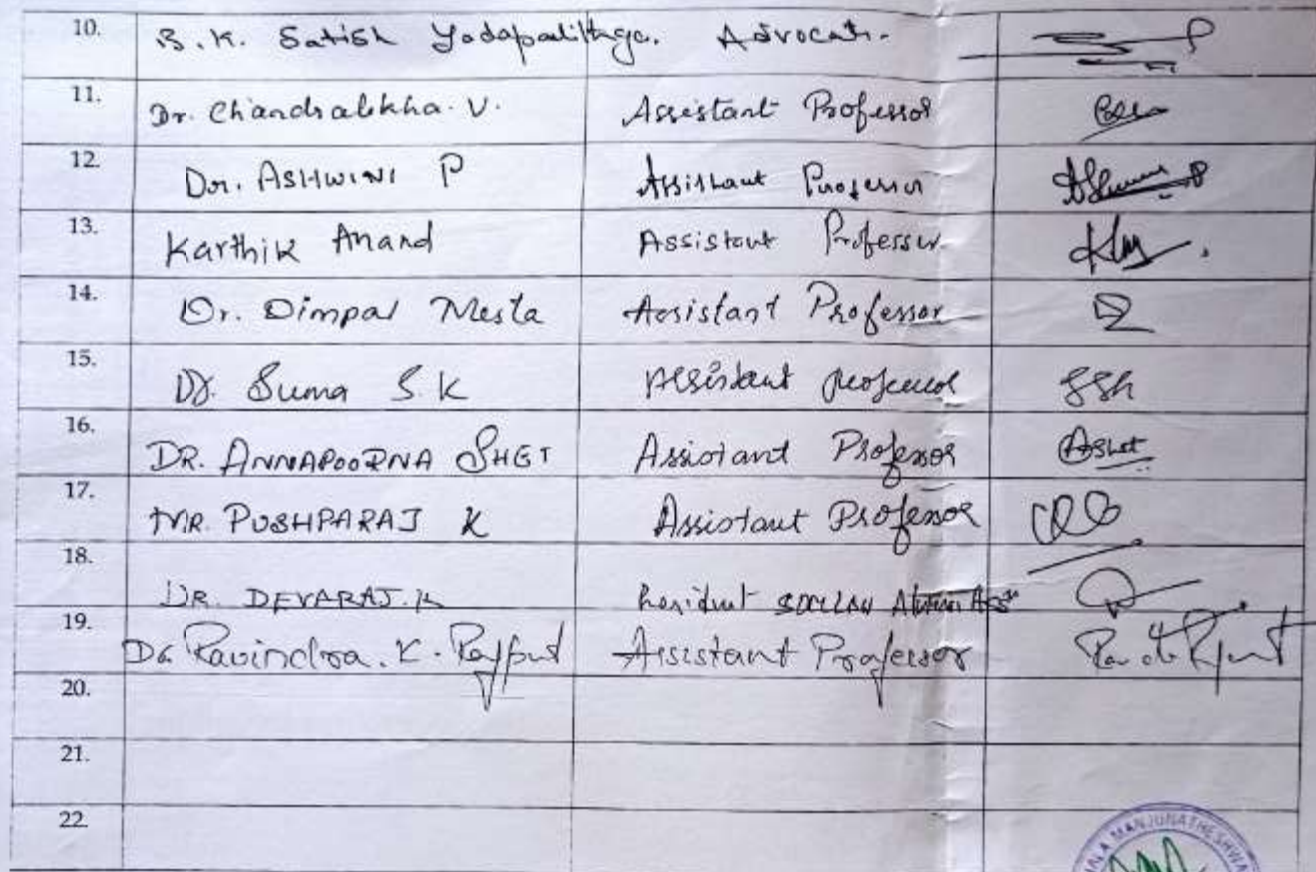 10. B.K. Satish Advocate.
11. Dr. Chandralekha. V. Assistant Professor
12. Dr. ASHWINI P Assistant Professor
13. Karthik Anand Assistant Professor
14. Dr. Dimpal Mesta Assistant Professor
15. Dr. Suma S. K Assistant Professor SSK
16. DR. ANNAPOORNA SHET Assistant Professor AShet
17. MR. PUSHPARAJ K Assistant Professor
18. DR. DEVARAJ. K
19. Dr. Ravindra. K. Rajput Assistant Professor
20.
21.
22.
MANJUNATHESHWA